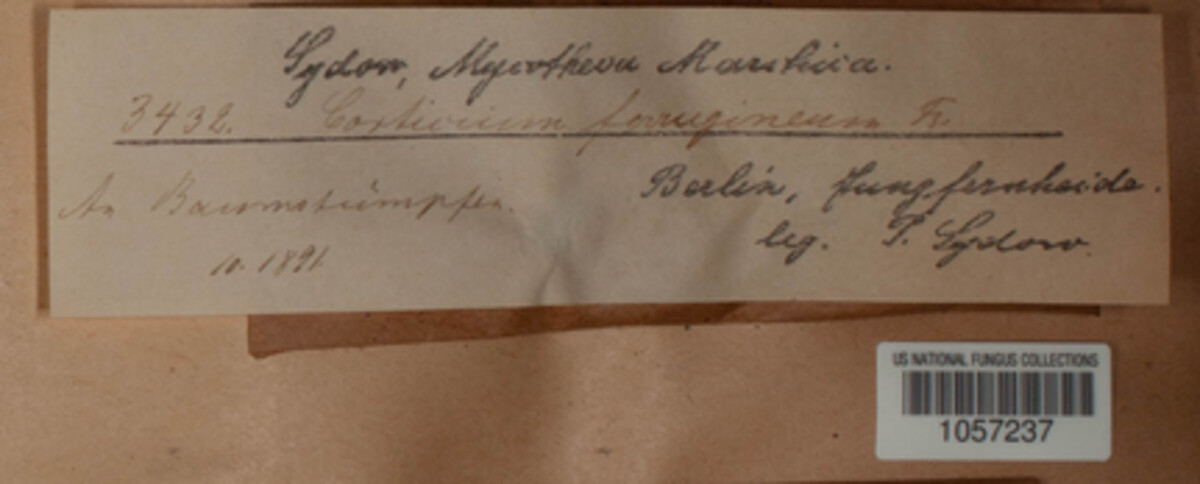 Sydow, Mycotheca Marchica.
3432. Corticium ferrugineum Fr.
An Baumstümpfen.
Berlin, Jungfernheide.
10. 1891
leg. P. Sydow.
US NATIONAL FUNGUS COLLECTIONS
1057237